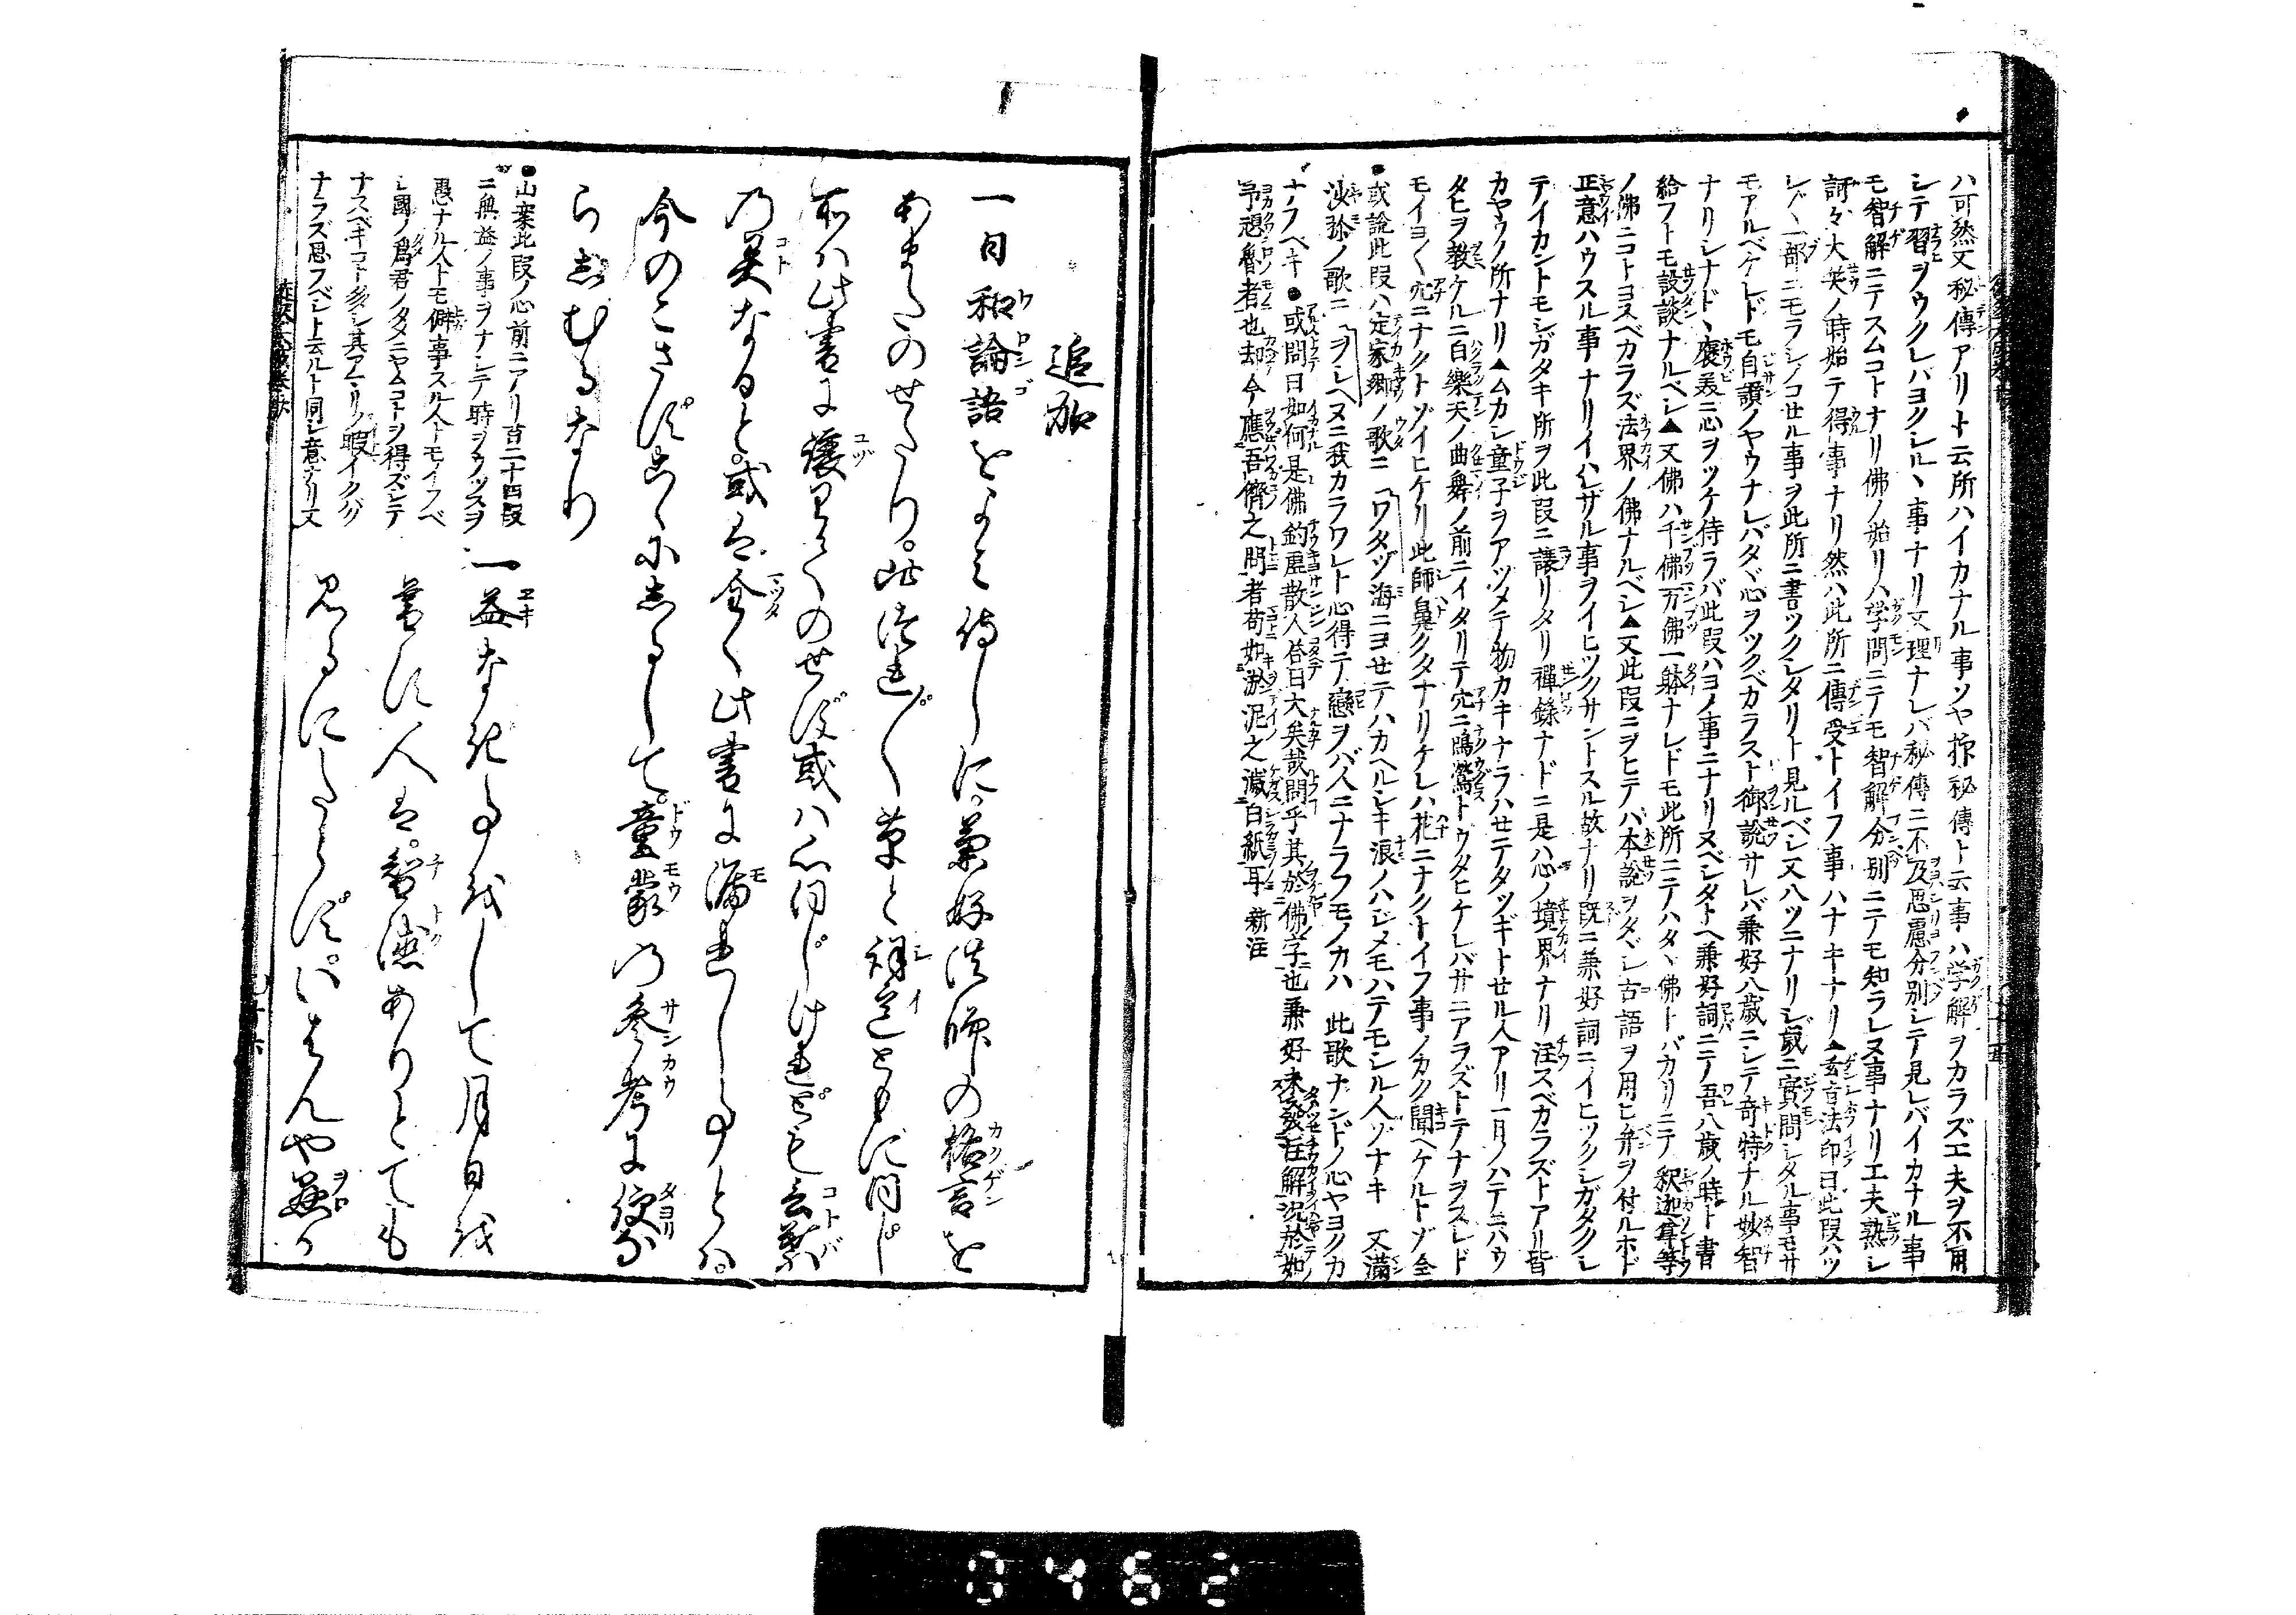 ハ可然又秘傳アリト云所ハイカナル事ソヤ抑秘傳ト云事ハ学解ヲカラズ工夫ヲ不用
シテ習ヲウクレバヨクシルヽ事ナリ文理ナレバ秘傳ニ不及思慮分別シテ見レバイカナル事
モ智解ニテスムコトナリ佛ノ始リハ学問ニテモ智解分別ニテモ知ラレヌ事ナリ工夫熟シ
訶々大笑ノ時始テ得事ナリ然ハ此所ニ傳受トイフ事ハナキナリ▲玄旨法印曰此段ハツ
レ〴〵一部ニモラシノコセル事ヲ此所ニ書ツクシタリト見ルベシ又八ツニナリシ歳ニ實問シタル事モサ
モアルベケレドモ自讃ノヤウナレバタヾ心ヲツクベカラスト御説サレバ兼好八歳ニシテ奇特ナル妙智
ナリシナドヽ褒美ニ心ヲツケ侍ラバ此段ハヨノ事ニナリヌベシタトヘ兼好詞ニテ吾八歳ノ時ト書
給フトモ設談ナルベシ▲又佛ハ千佛万佛一躰ナレドモ此所ニテハタヽ佛トバカリニテ釈迦牟等
ノ佛ニコトヨスベカラズ法界ノ佛ナルベシ▲又此段ニヲヒテハ本説ヲタヾシ古語ヲ用ヒ弁ヲ付ルホド
正意ハウスル事ナリイハレザル事ヲイヒツクサントスル故ナリ既ニ兼好詞ニイヒツクシガタクシ
テイカントモシガタキ所ヲ此段ニ譲リタリ禅録ナドニ是ハ心ノ境界ナリ注スベカラズトアリ皆
カヤウノ所ナリ▲ムカシ童子ヲアツメテ物カキナラハセテタツギトセル人アリ一月ノハテニハウ
タヒヲ教ケルニ白樂天ノ曲舞ノ前ニイタリテ穴ニ鳴鶯トウタヒケレバサニアラズトテナヲスレド
モイヨ〳〵穴ニナクトゾイヒケリ此師鼻クタナリケレハ花ニナクトイフ事ノカク聞ヘケルトゾ全
●或説此段ハ定家卿ノ歌ニ「ワタヅ海ニヨセテハカヘルシキ浪ノハジメモハテモシル人ゾナキ 又滿
沙弥ノ歌ニ「ヲシヘヌニ我カラワレト心得テ戀ヲバ人ニナラフモノカハ 此歌ナンドノ心ヤヨクカ
ナフヘキ●或問曰如何是佛釣虚散人答曰大矣哉問乎其於佛学也兼好未發注解况於如
予憩魯者也却今應吾儕之問者苟如淤泥之濺白紙耳 新注
追加
一日和論語をよミ侍しに兼好法師の格言を
あまたのせたり。此法語〴〵草と詞意ともに同じ
所ハ此書に譲りてのせず或ハ心同じけれども言葉
乃異なると。或は全く此書に漏れし事とハ。
今のこさずこゝにしるして。童蒙の参考に便な
らしむるなり
●山案此段ノ心前ニアリ百二十四段
ニ無益ノ事ヲナシテ時ヲウツスヲ
愚ナル人トモ僻事スル人トモイフベ
シ國ノ爲君ノタメニヤムコトヲ得ズシテ
ナスベキコト多シ其アマリノ暇イクバク
ナラズ思フベシト云ルト同シ意ナリ文
一益なき事をして月日を
書す人は。智徳ありとても
見るにたらず。いはんや愚か